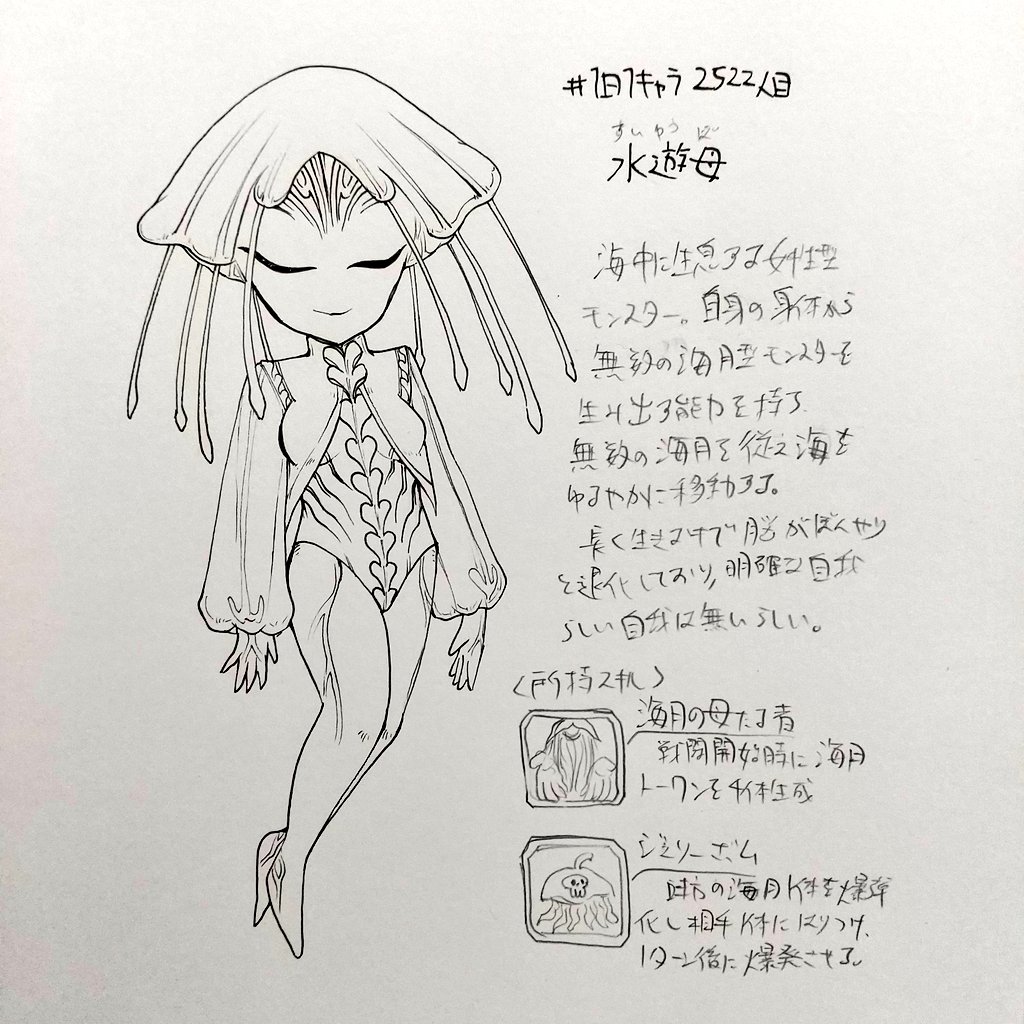 #1日1キャラ 2522人目
すいゆうぼ
水遊母
海中に生息する女性型
モンスター。自身の身体から
無数の海月型モンスターを
生み出す能力を持つ
無数の海月を従え海を
ゆるやかに移動する。
長く生きすぎて脳がぼんやり
と退化しており,明確な自我
らしい自我は無いらしい。
〈所持スキル〉
海月の母たる者
戦闘開始時に海月
トークンを4体生成
ジェリーボム
味方の海月1体を爆弾
化し相手1体にはりつけ、
1ターン後に爆発させる。